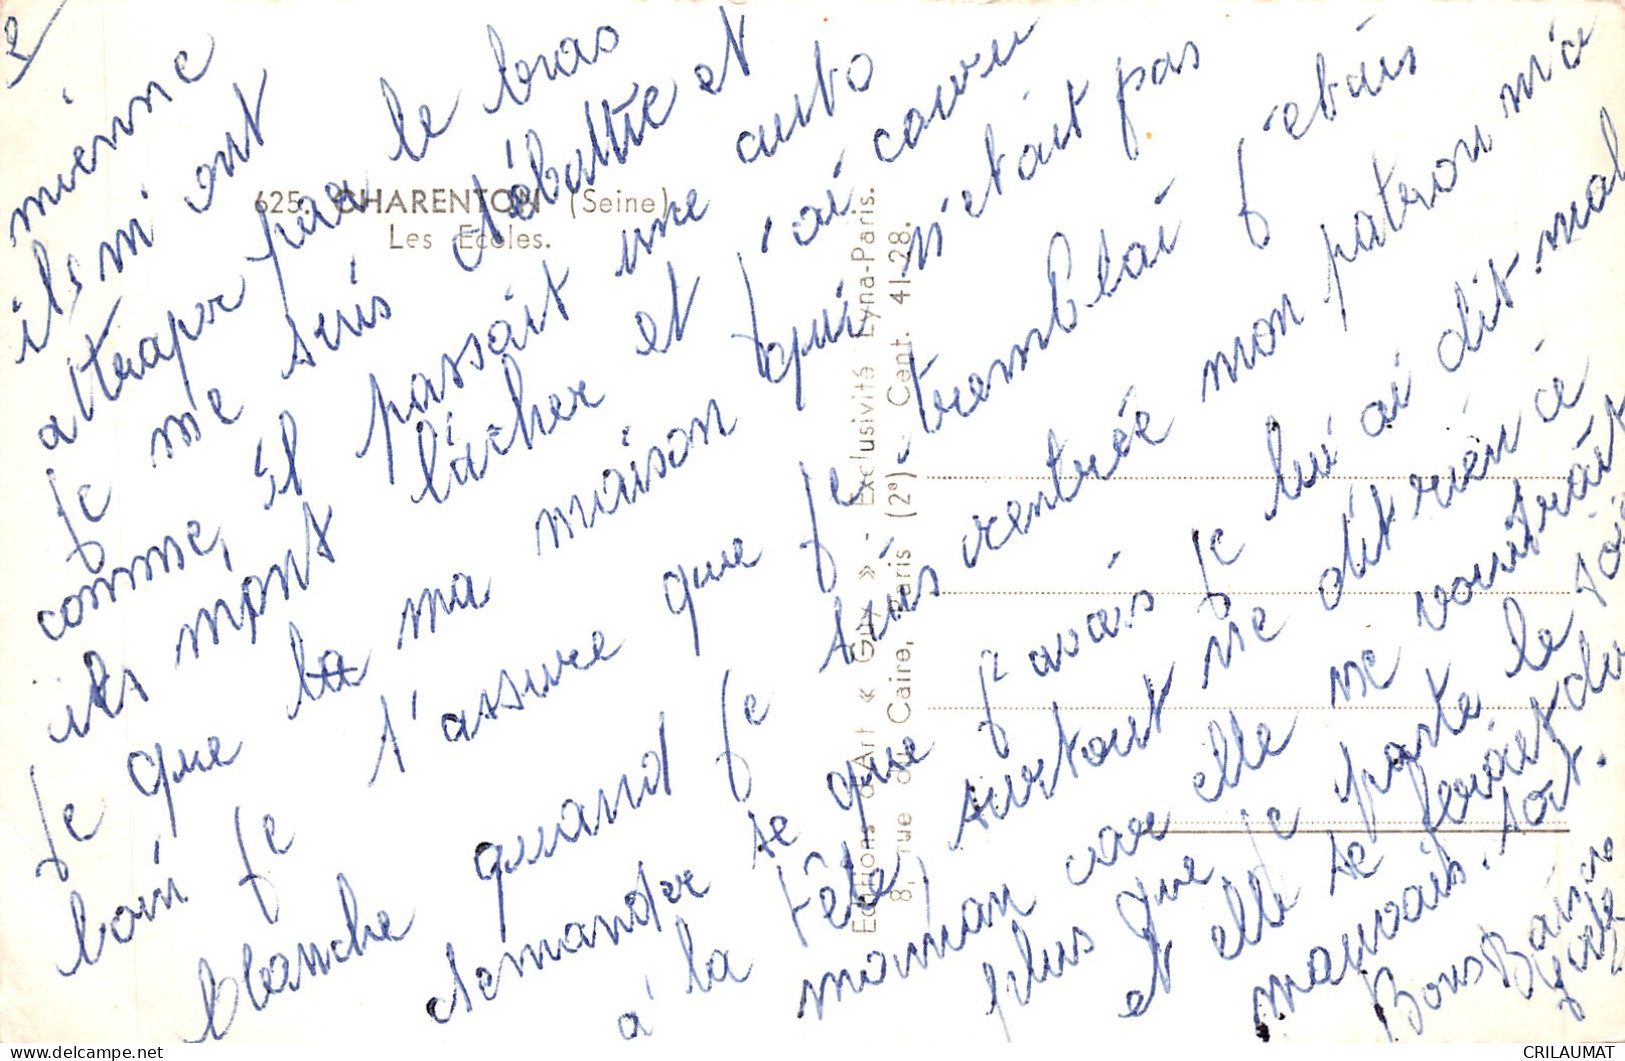 2
mienne
ils m'ont
attraper par le bras
je me suis débattre et
comme, il passait une auto
ils mont lâcher et j'ai couru
je que la ma maison qui n'etait pas
loin je t'assure que je tremblai j'etais
blanche quand je suis rentrée mon patron m'a
demander se que j'avais je lui ai dit mal
à la tête, surtout ne dit rien a
maman car elle ne voudrait
plus que je parte le soir
et elle se ferait du
mauvais. sort.
Bons Baisers
625. CHARENTON (Seine)
Les Ecoles.
Editions d'Art « Guy » - Exclusivité Lyna-Paris.
8, rue du Caire, Paris (2e) - Cent. 41-28.
CRILAUMAT